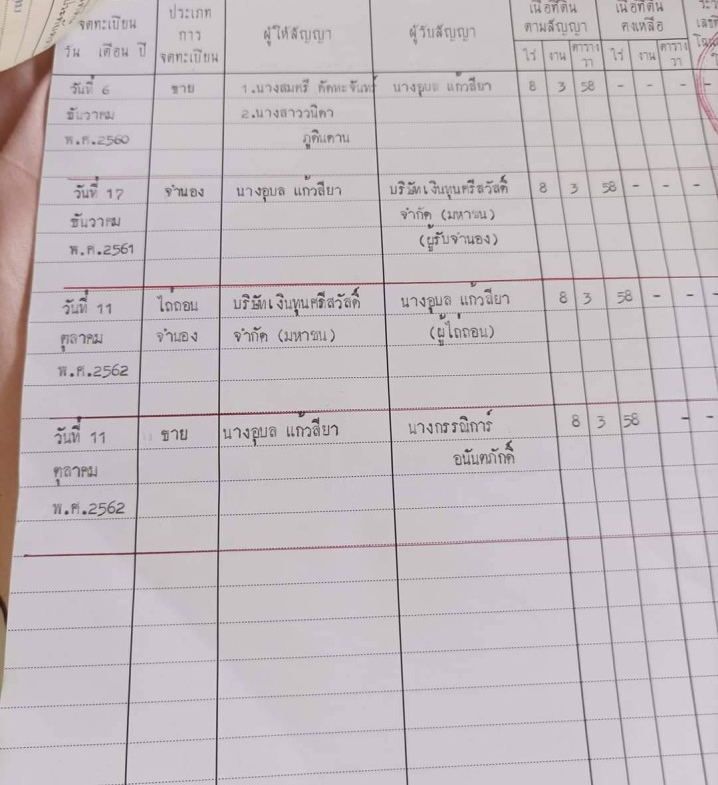 จดทะเบียน
วัน เดือน ปี
ประเภท
การ
จดทะเบียน
ผู้ให้สัญญา
ผู้รับสัญญา
เนื้อที่ดิน
ตามสัญญา
ไร่ งาน ตาราง
วา
เนื้อที่ดิน
คงเหลือ
ไร่ งาน ตาราง
วา
วันที่ 6 ขาย 1.นางสมศรี นางอุบล แก้วสียา 8 3 58 - - -
ธันวาคม 2.นางสาววนิดา
พ.ศ.2560 ภูดินดาน
วันที่ 17 จำนอง นางอุบล แก้วสียา บริษัทเงินทุนศรีสวัสดิ์ 8 3 58 - - -
ธันวาคม จำกัด (มหาชน)
พ.ศ.2561 (ผู้รับจำนอง)
วันที่ 11 ไถ่ถอน บริษัทเงินทุนศรีสวัสดิ์ นางอุบล แก้วสียา 8 3 58 - - -
ตุลาคม จำนอง จำกัด (มหาชน) (ผู้ไถ่ถอน)
พ.ศ.2562
วันที่ 11 ขาย นางอุบล แก้วสียา นางกรรณิการ์ 8 3 58 - -
ตุลาคม อนันตภักดิ์
พ.ศ.2562